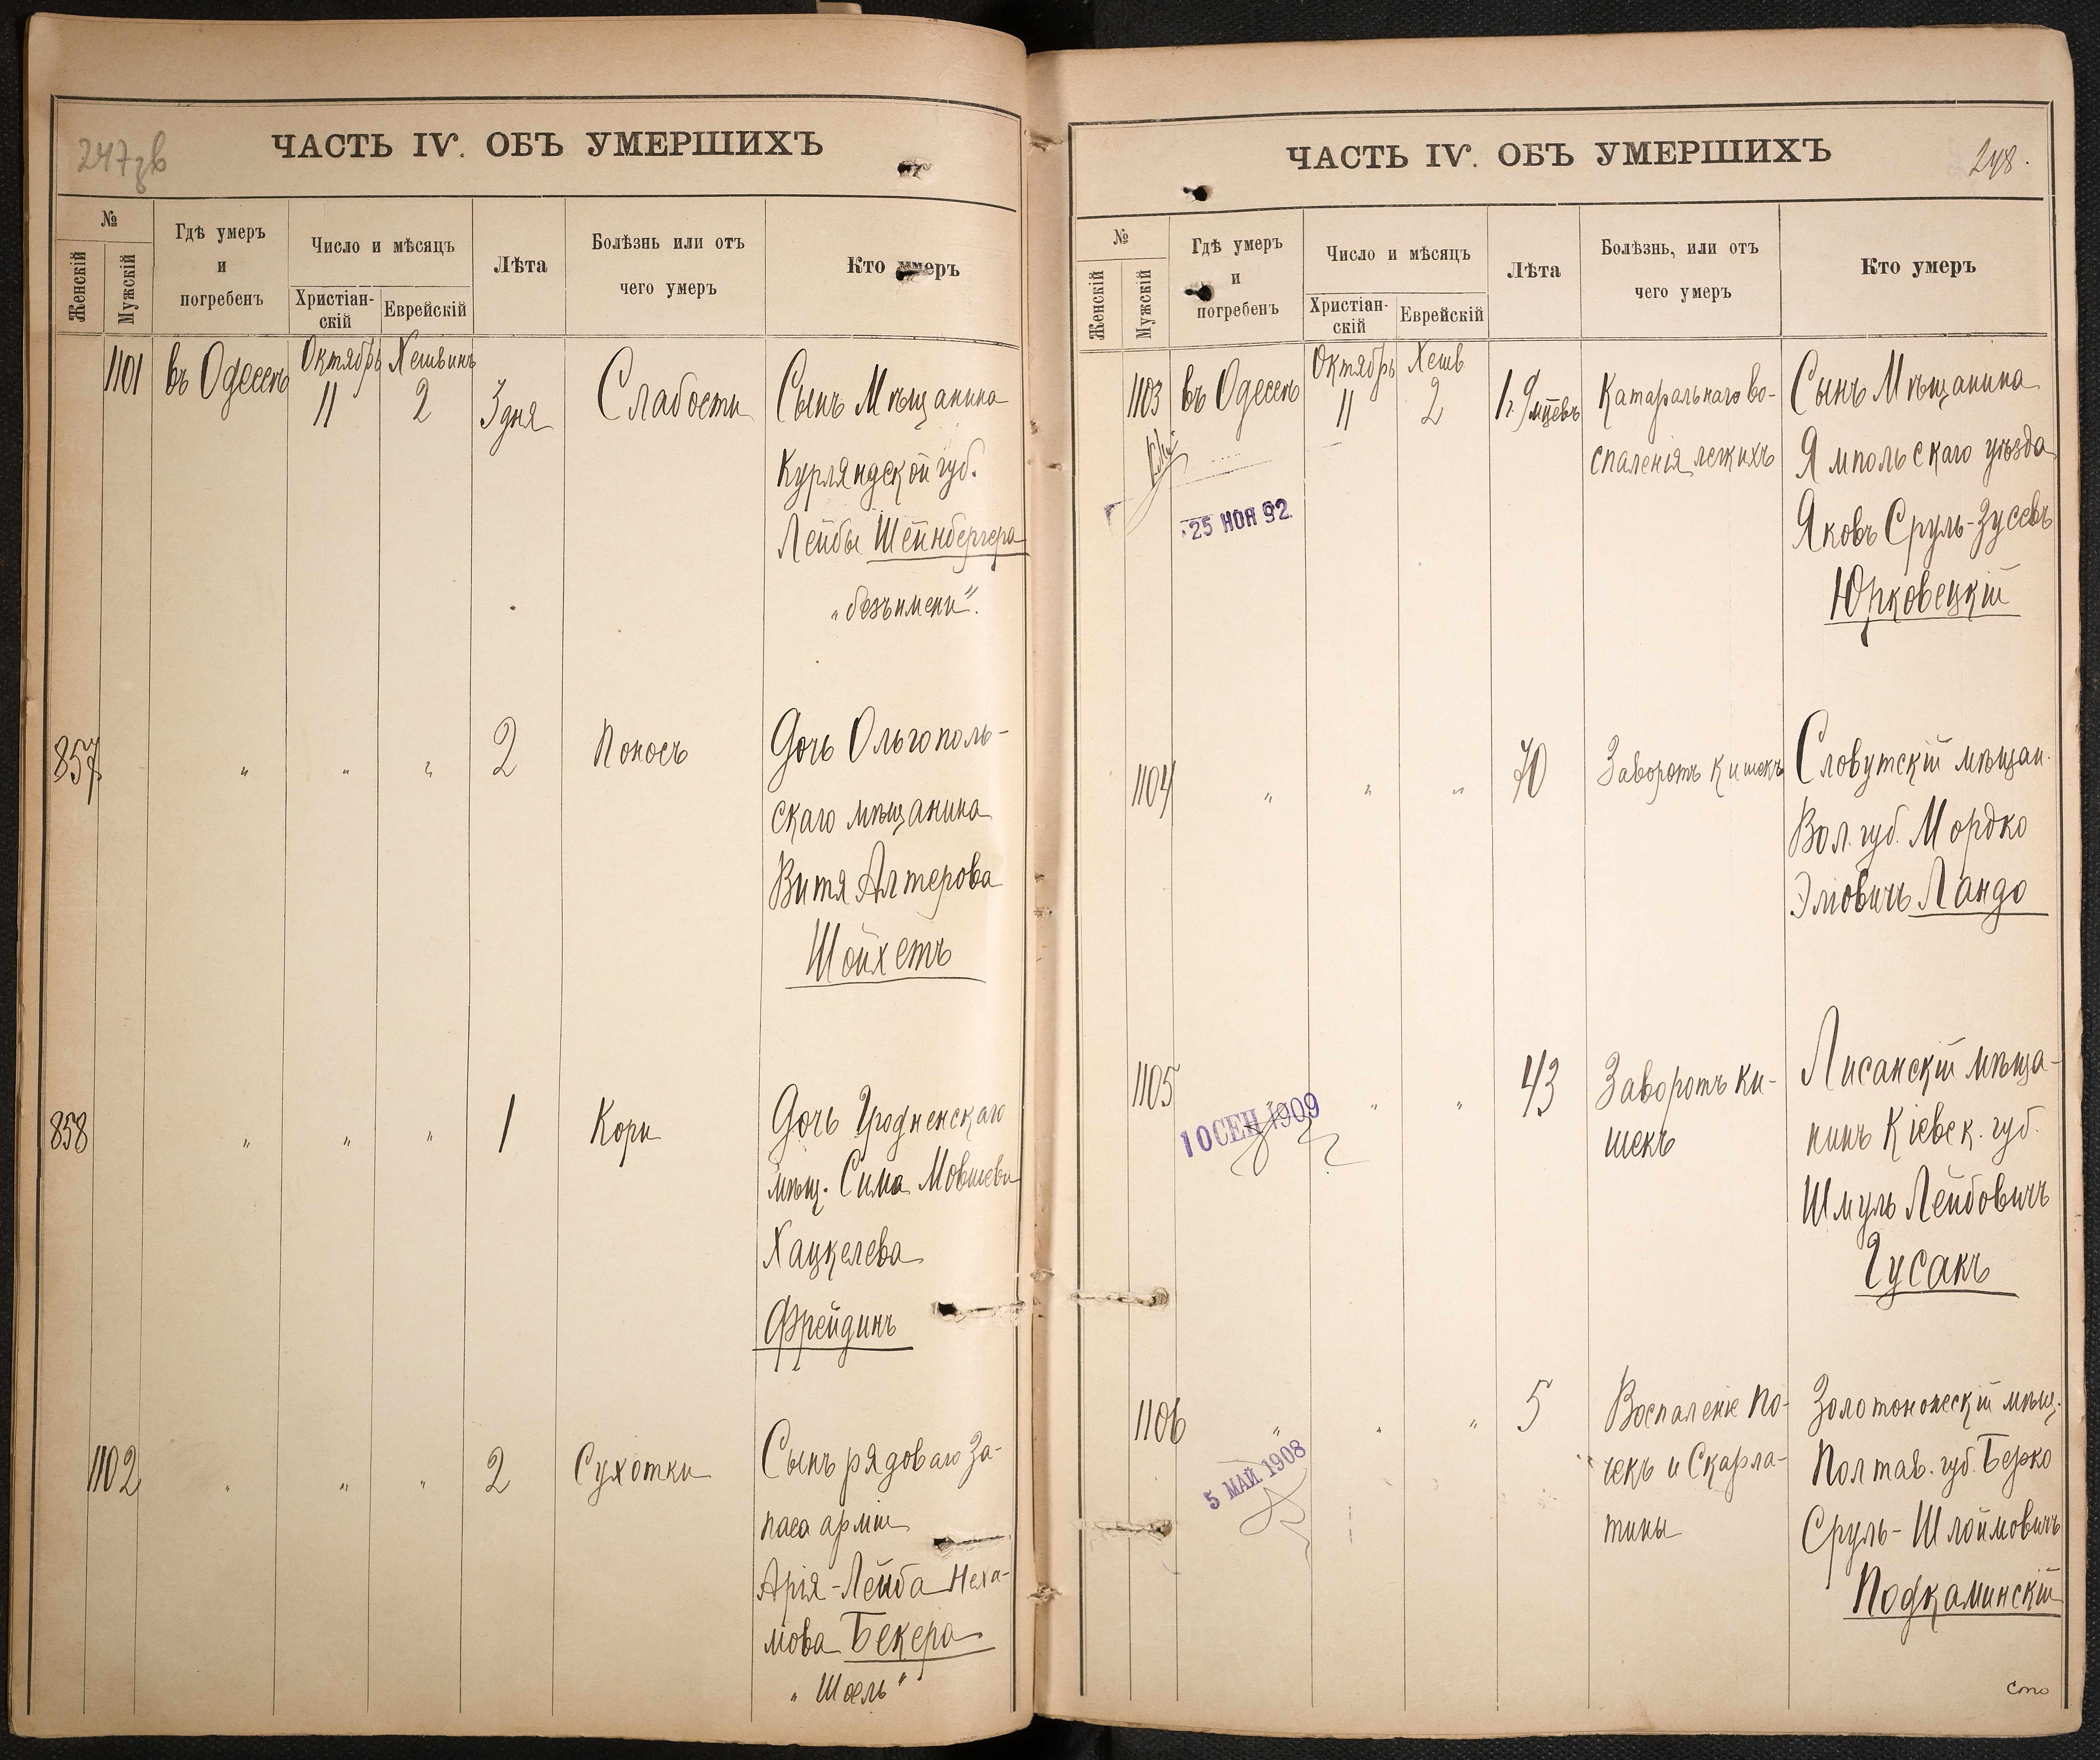 247 зв
ЧАСТЬ IV. ОБЪ УМЕРШИХЪ
№
Женскій
Мужскій
Гдѣ умеръ
и
погребенъ
Число и мѣсяцъ
Христіан-
скій
Еврейскій
Лѣта
Болѣзнь или отъ
чего умеръ
Кто умеръ
1101 въ Одессѣ Октябрь 11 Хешвинъ 2 3 дня Слабости Сынъ Мѣщанина
Курляндской губ.
Лейбы Шейнбергера
„безъимени".
857 " " " 2 Поносъ Дочь Ольгополь-
скаго мѣщанина
Витя Алтерова
Шойхетъ
858 " " " 1 Кори Дочь Гродненскаго
мѣщ. Сима Мовшева
Хацкелева
Фрейдинъ
1102 " " " 2 Сухотки Сынъ рядоваго За-
паса арміи
Арія-Лейба Неха-
мова Бекера
„Шоель"
ЧАСТЬ IV. ОБЪ УМЕРШИХЪ
248.
№
Женскій
Мужскій
Гдѣ умеръ
и
погребенъ
Число и мѣсяцъ
Христіан-
скій
Еврейскій
Лѣта
Болѣзнь, или отъ
чего умеръ
Кто умеръ
1103 въ Одессѣ Октябрь 11 Хешв 2 1 г. 9 мцевъ Катаральнаго во- Сынъ Мѣщанина
спаленія легкихъ Ямпольскаго уѣзда
25 НОЯ 92 Яковъ Сруль-Зусевъ
Юрковецкій
1104 " " " 70 Заворотъ кишекъ Словутскій мѣщан.
Вол. губ. Мордко
Эліовичъ Ландо
1105 " " " 43 Заворотъ ки- Лисанскій мѣща-
10 СЕН 1909 шекъ нинъ Кіевск. губ.
Шмуль Лейбовичъ
Гусакъ
1106 " " " 5 Воспаленіе по- Золотоношескій мѣщ.
5 МАЙ 1908 чекъ и Скарла- Полтав. губ. Берко
тины Сруль-Шлоймовичъ
Подкаминскій